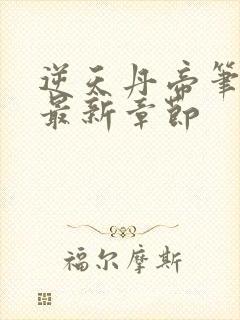 逆天丹帝筆
最新章節
福尔摩斯